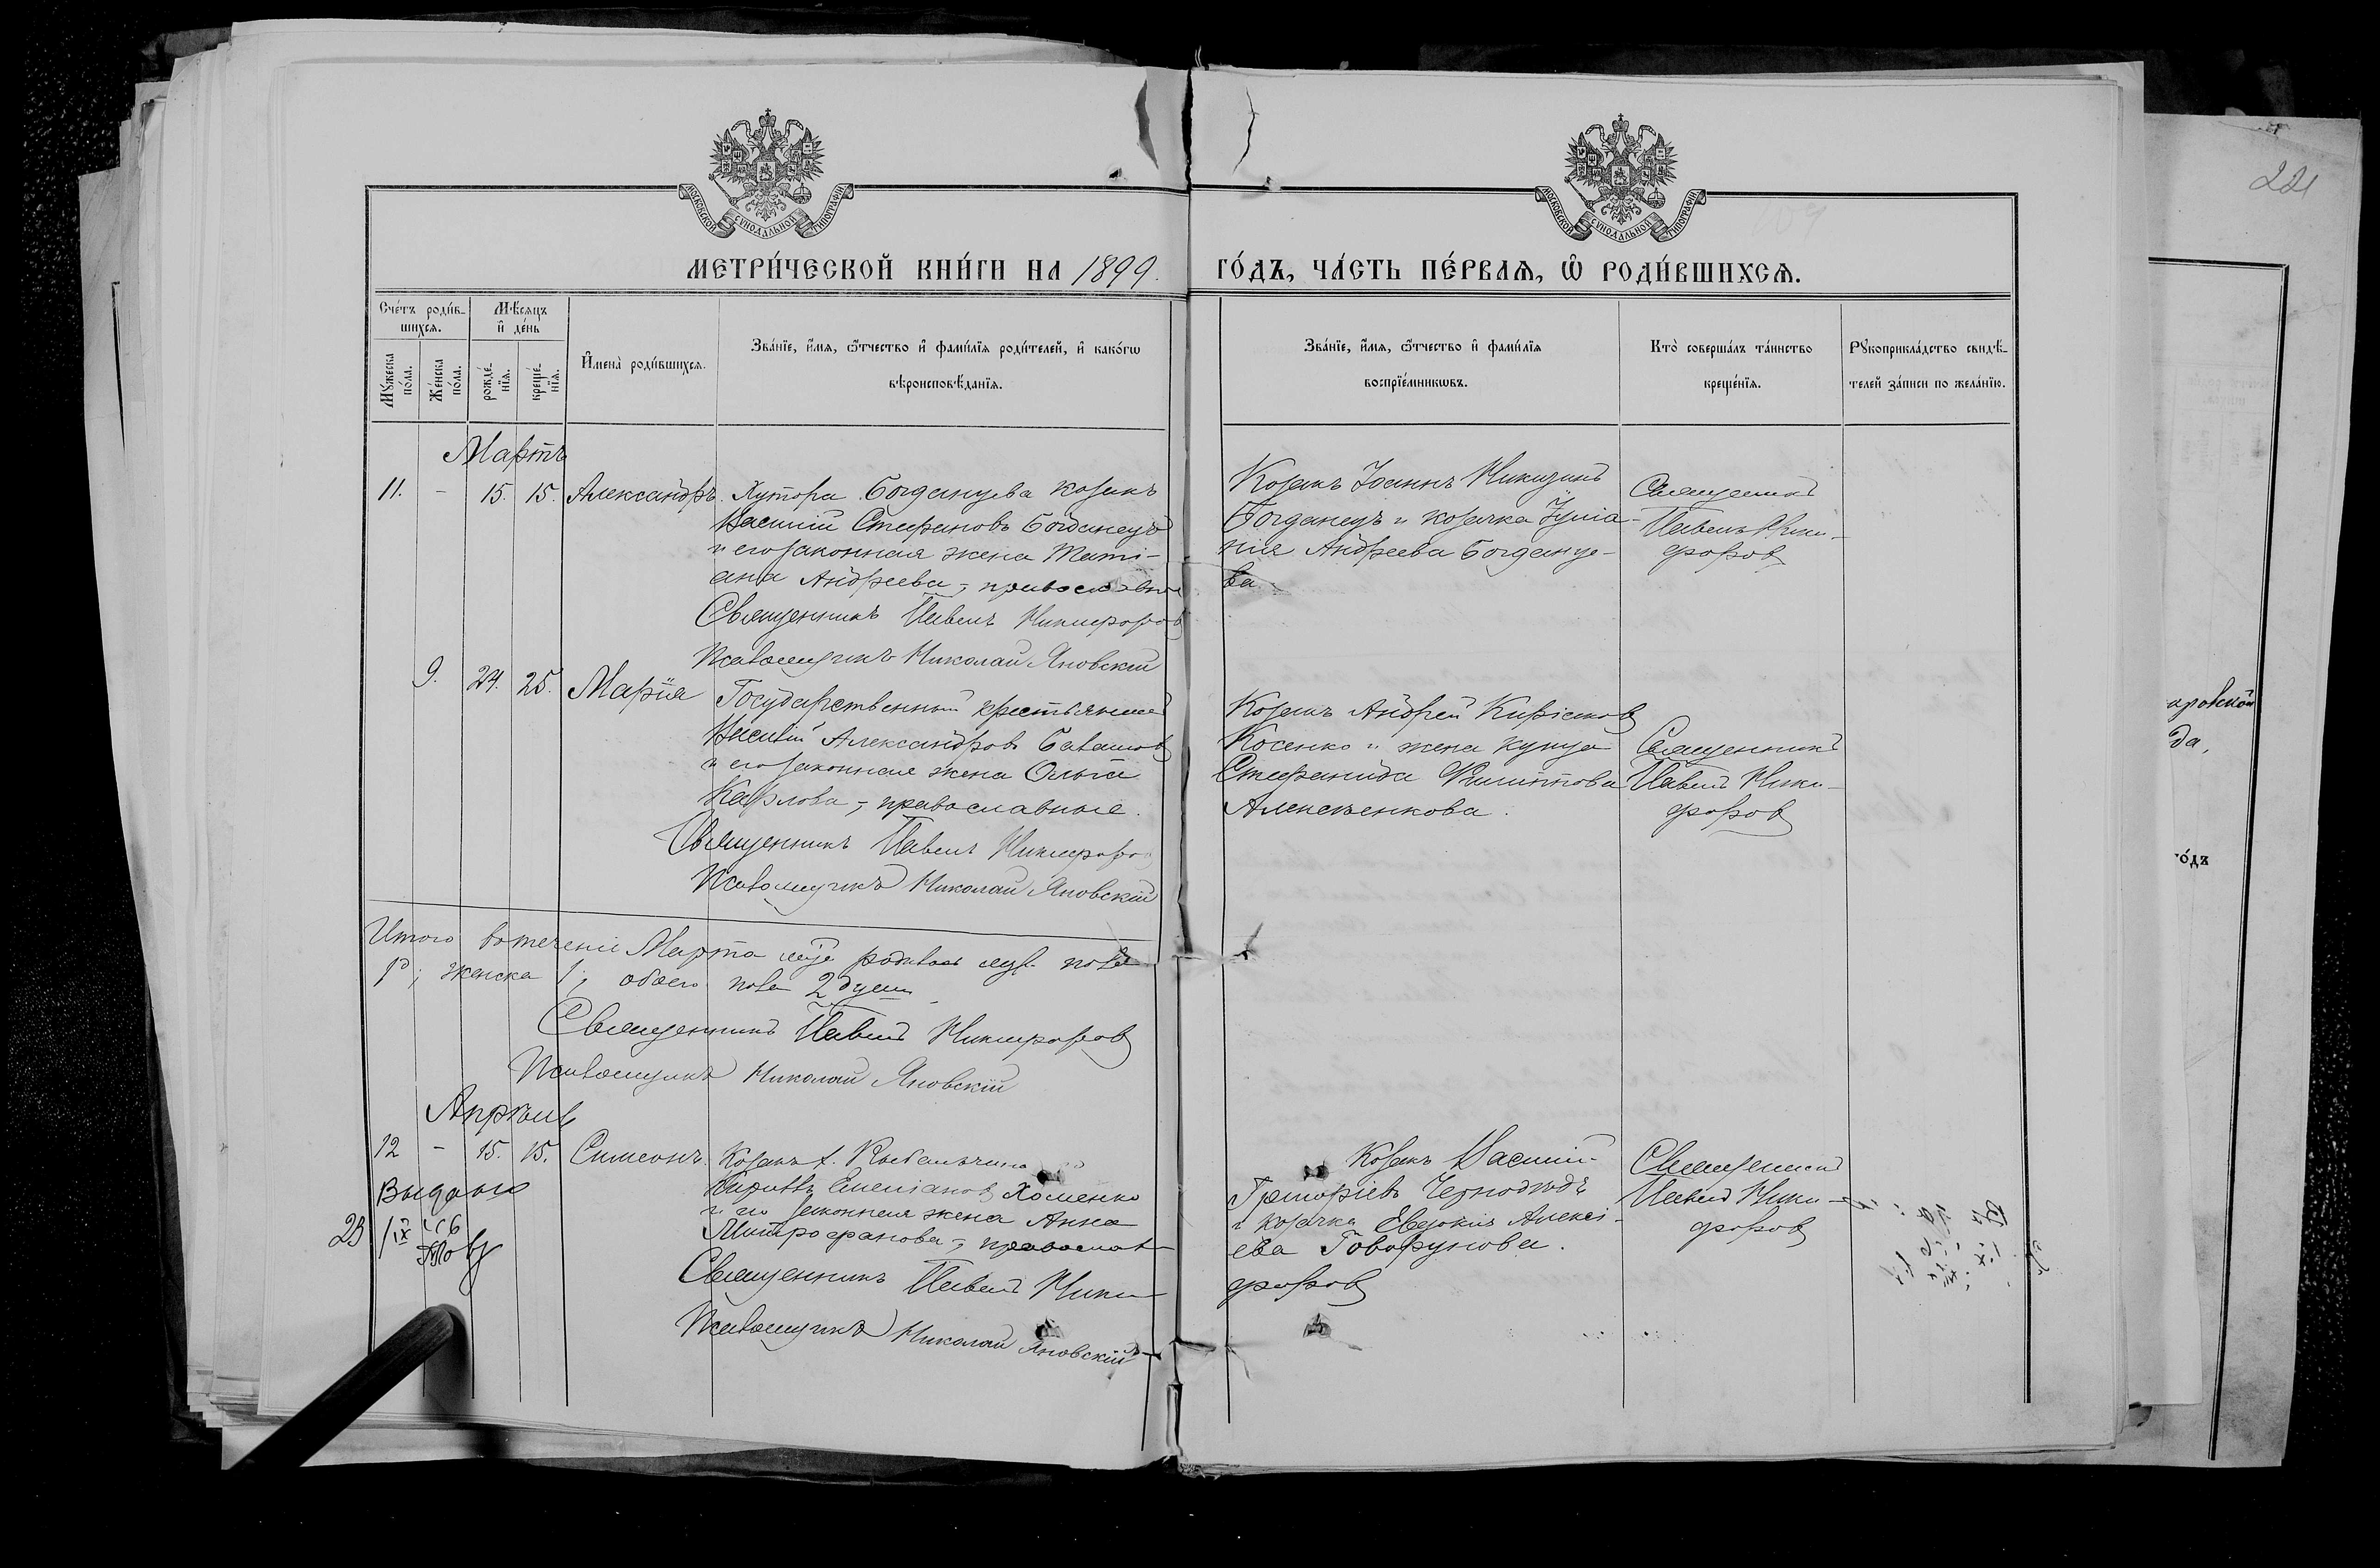 МОСКОВСКОЙ СѴНОДАЛЬНОЙ ТИПОГРАФІИ
МОСКОВСКОЙ СѴНОДАЛЬНОЙ ТИПОГРАФІИ
221
МЕТРИ́ЧЕСКОЙ КНИ́ГИ НА 1899.
ГО́ДЪ, ЧА́СТЬ ПЕ́РВАѦ, Ѡ҆ РОДИ́ВШИХСѦ.
Сче́тъ роди́в-
шихсѧ.
Мѣ́сѧцъ
и҆ де́нь
Мꙋ́жеска
по́ла.
Же́нска
по́ла.
рожде́-
нїѧ.
креще́-
нїѧ.
И҆мена̀ роди́вшихсѧ.
Зва́нїе, и҆́мѧ, ѻ҆́тчество и҆ фами́лїѧ роди́телей, и҆ како́гѡ
вѣроисповѣ́данїѧ.
Зва́нїе, и҆́мѧ, ѻ҆́тчество и҆ фами́лїѧ
воспрїе́мникѡвъ.
Кто̀ соверша́лъ та́инство
креще́нїѧ.
Рꙋкоприкла́дство свидѣ́-
телей за́писи по жела́нїю.
Мартъ
11. - 15. 15. Александръ. Хутора Богданцева козакъ
Василій Стефановъ Богданецъ
и его законная жена Тати-
ана Андреева, - православн
Священникъ Павелъ Никифоров
Псаломщикъ Николай Яновскій
Козакъ Іоаннъ
Богданецъ и козачка Іулiа-
нія Андреева Богданце-
ва.
Священникъ
Павелъ Ники-
форов
9. 24. 25. Марія Государственный крестьянинъ
Василій Александров
и его законная жена Ольга
Карлова, - православные.
Священникъ Павелъ Никифоро
Псаломщикъ Николай Яновскій
Козакъ Андрей
Косенко и жена купца
Стефанида Филиппова
Алексѣенкова.
Священникъ
Павелъ Ники-
форов
Итого в теченіе Марта м-ца родилось муж. пола
1; женска 1; обоего пола 2 души
Священникъ Павелъ Никифоров
Псаломщикъ Николай Яновскій
Апрѣль
12 - 15. 15. Симеонъ. Козакъ х.
Емеліанов Хоменко
и его законная жена Анна
Митрофанова, - православ
Священникъ Павелъ Ники-
Псаломщикъ Николай Яновскій
Выдано
23/IX
Козакъ Василій
Григоріевъ Чернодѣдъ
и козачка Евдокія Алексі-
ева Говорунова.
форов
Священникъ
Павелъ Ники-
форов
аровской
да,
о́дъ